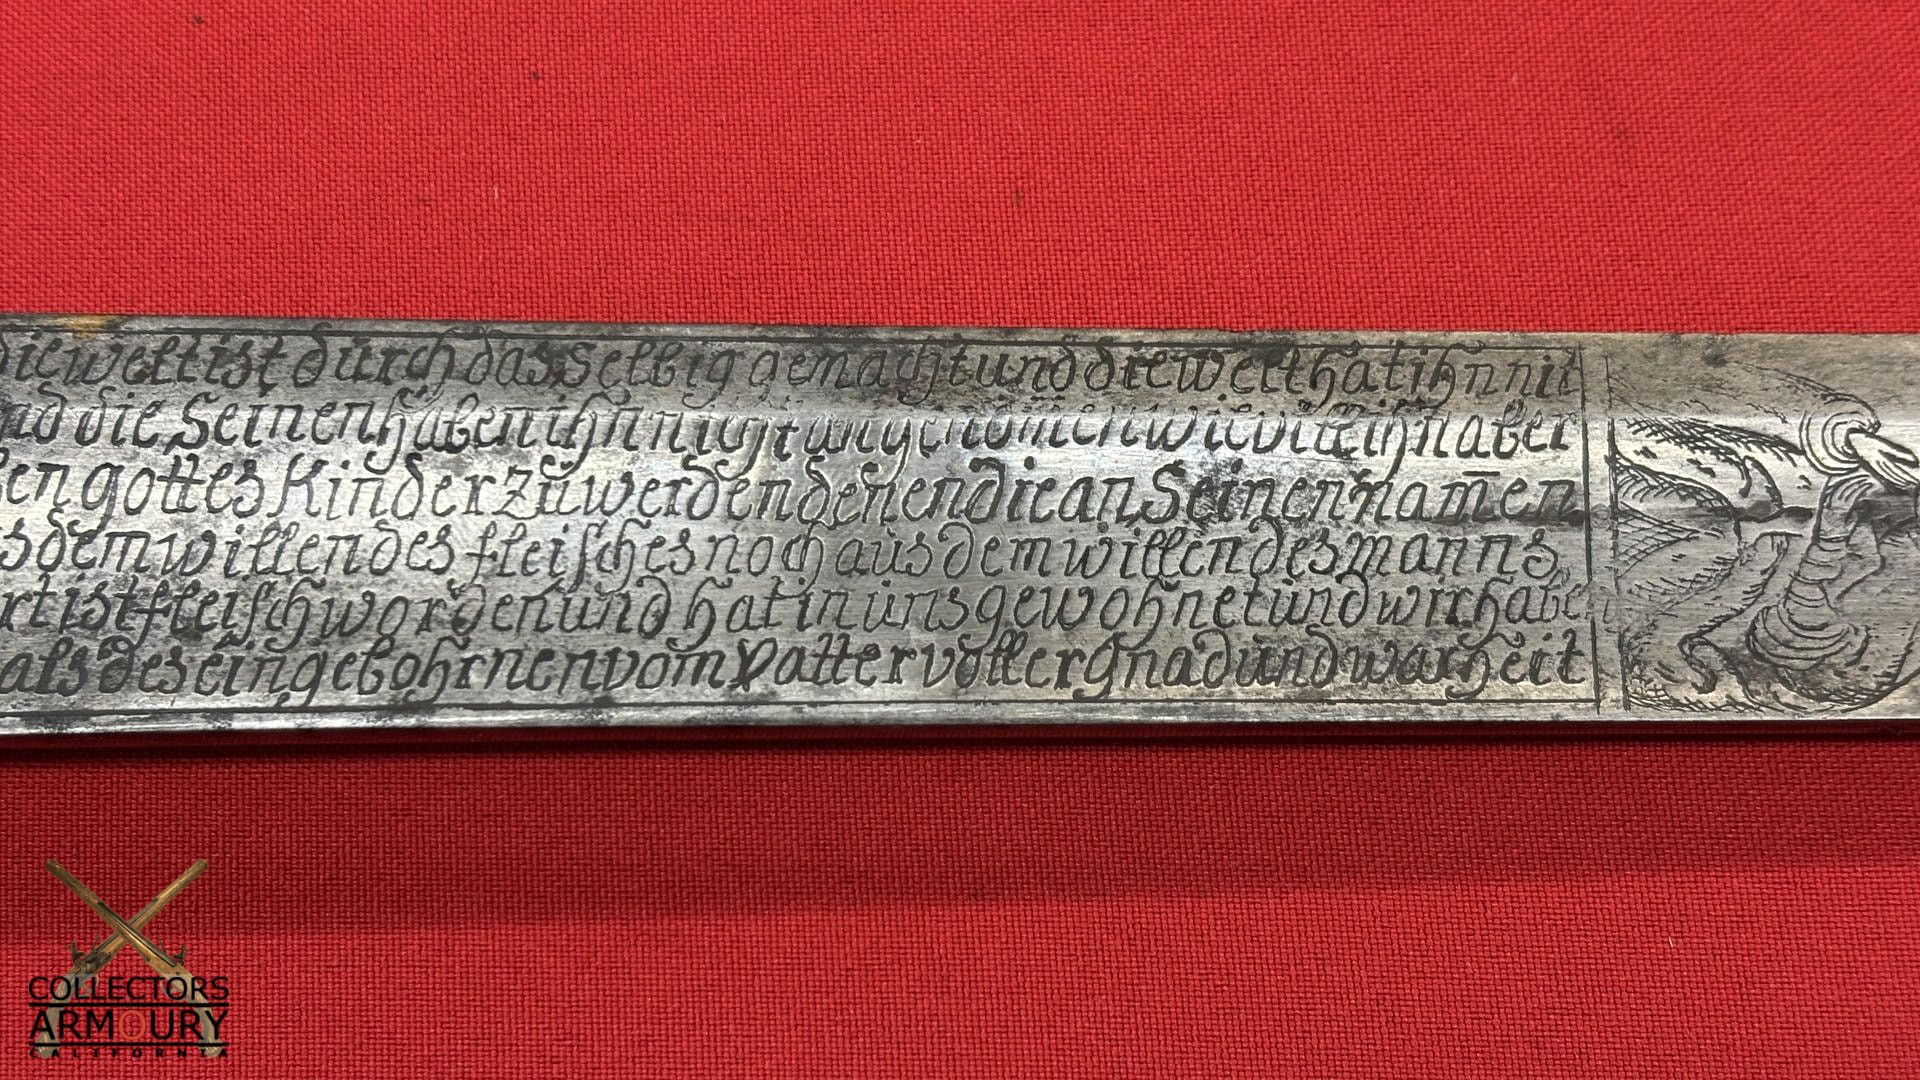 die welt ist dürch das Selbig gemacht und die welt hat ihn nit
nd die Seinen haben ihn nicht angenomen wie vill ihn aber
en gottes Kinder zü werden denen die an Seinen namen
s dem willen des fleisches noch aüs dem willen des manns
rt ist fleisch worden ünd hat in üns gewohnet ünd wir haben
als des eingebohrnen vom Vatter voller gnad ünd warheit
COLLECTORS
ARMOURY
CALIFORNIA